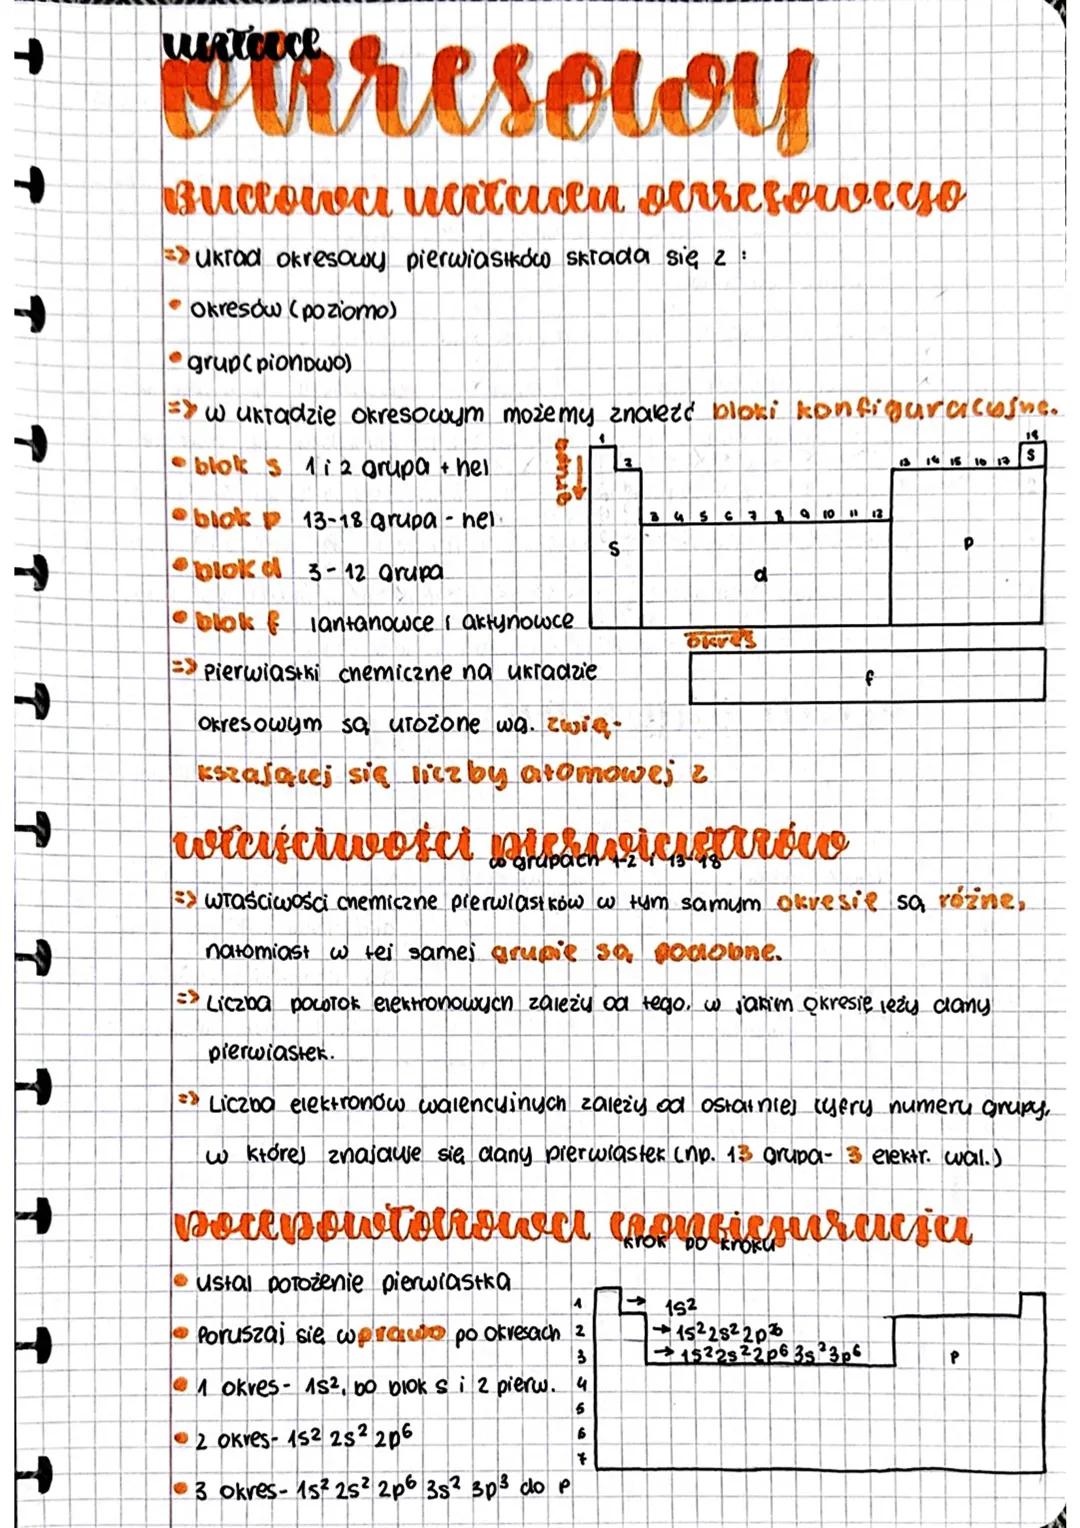 układ
okresowy
Budowa układu okresowego
=> układ okresowy pierwiastków składa się z :
• okresów (poziomo)
• grup (pionowo)
=> w układzie okresowym możemy znaleźć bloki konfiguracyjne.
• blok s 1 i 2 grupa + hel
• blok p 13-18 grupa - hel
• blok d 3-12 grupa
• blok f lantanowce i aktynowce
grupa
1 2 3 4 5 6 7 8 9 10 11 12 13 14 15 16 17 18
S
s d p
okres
f
=> Pierwiastki chemiczne na układzie
okresowym są ułożone wg. zwię-
kszającej się liczby atomowej Z
właściwości pierwiastków
w grupach 1-2 i 13-18
=> właściwości chemiczne pierwiastków w tym samym okresie są różne,
natomiast w tej samej grupie są podobne.
=> Liczba powłok elektronowych zależy od tego, w jakim okresie leży dany
pierwiastek.
=> Liczba elektronów walencyjnych zależy od ostatniej cyfry numeru grupy,
w której znajduje się dany pierwiastek (np. 13 grupa- 3 elektr. wal.)
podpowłokowa konfiguracja
krok po kroku
• ustal położenie pierwiastka
• Poruszaj się w prawo po okresach
• 1 okres- 1s², bo blok s i 2 pierw.
• 2 okres- 1s² 2s² 2p⁶
• 3 okres- 1s² 2s² 2p⁶ 3s² 3p³ do p
1 → 1s²
2 → 1s² 2s² 2p⁶
3 → 1s² 2s² 2p⁶ 3s² 3p⁶
p
4
5
6
7